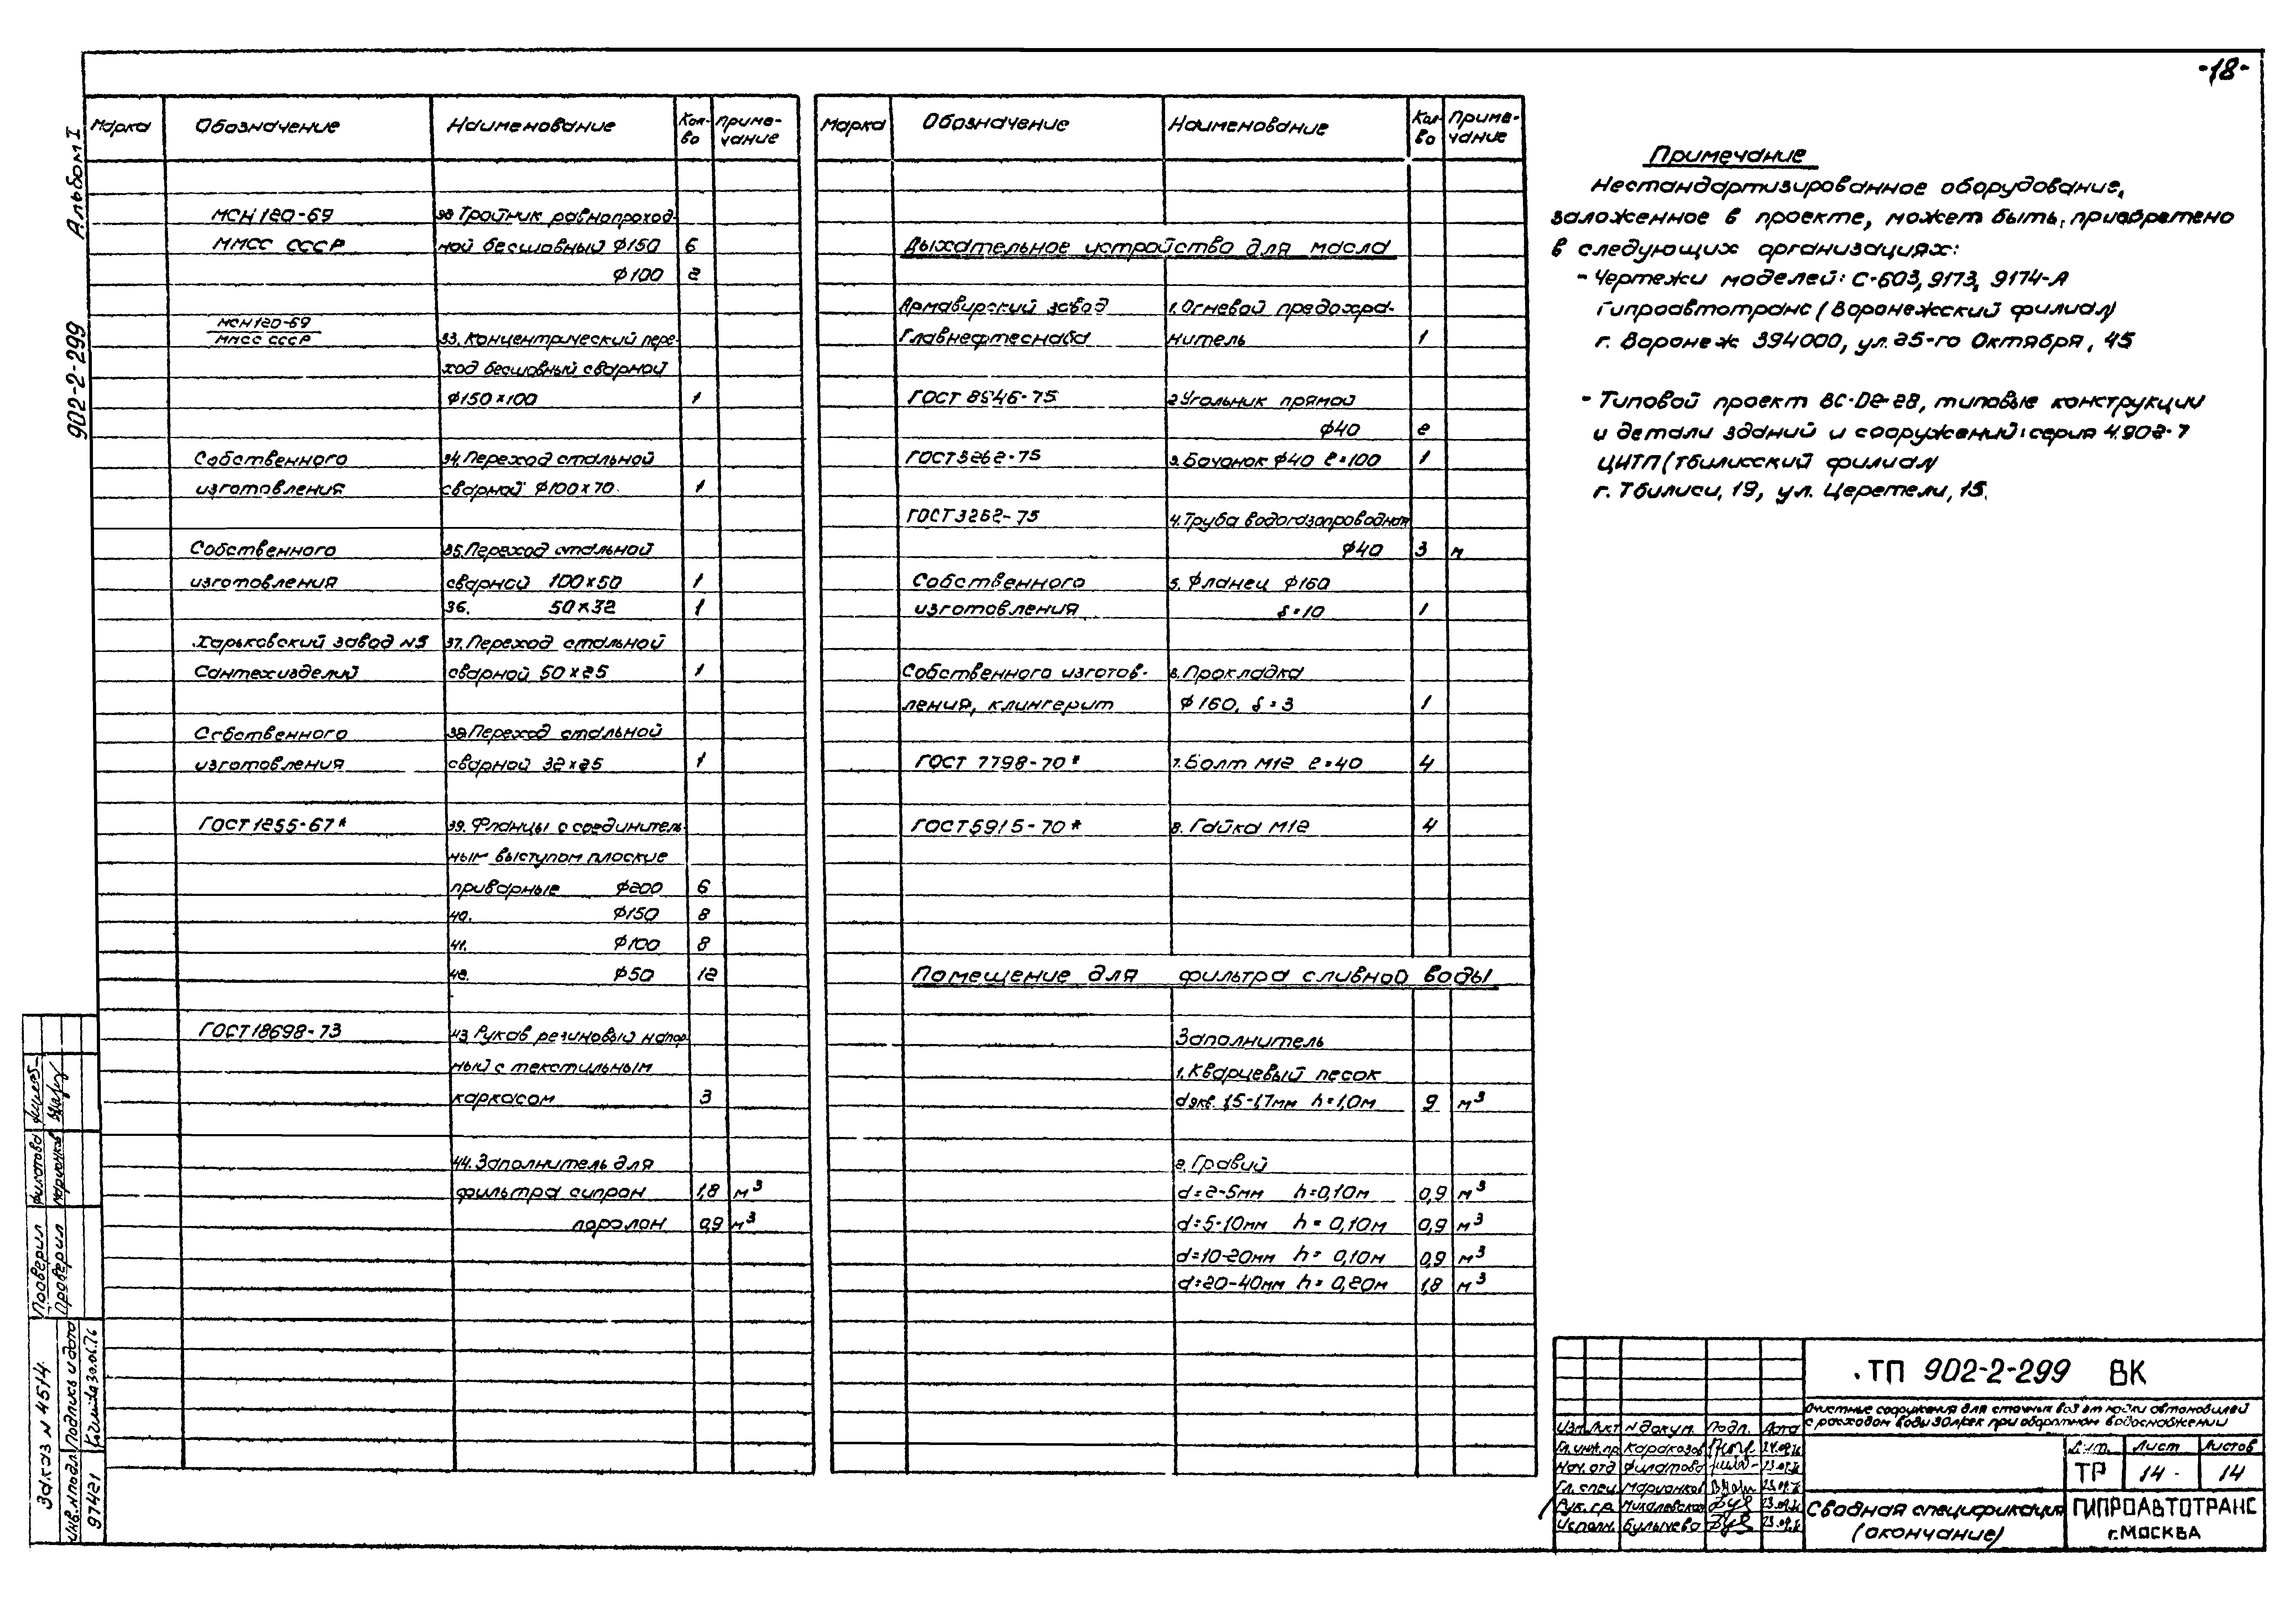 -18-
Альбом I
902-2-299
Марка Обозначение Наименование Кол-во Примечание
МСН 120-69 Тройник равнопроход-
ММСС СССР ной бесшовный ф150 6
ф100 2
МСН 120-69
ММСС СССР 33. Концентрический пере-
ход бесшовный сварной
ф150×100 1
Собственного 34. Переход стальной
изготовления сварной ф100×70 1
Собственного 35. Переход стальной
изготовления сварной 100×50 1
36. 50×32 1
Харьковский завод №5 37. Переход стальной
Сантехизделий сварной 50×25 1
Собственного 38 Переход стальной
изготовления сварной 32×25 1
ГОСТ 1255-67* 39. Фланцы с соединитель-
ным выступом плоские
приварные ф200 6
40. ф150 8
41. ф100 8
42. ф50 12
ГОСТ 18698-73 43 Рукав резиновый напор-
ный с текстильным
каркасом 3
44. Заполнитель для
фильтра сипрон 1,8 м³
поролон 0,9 м³
Марка Обозначение Наименование Кол-во Примечание
Дыхательное устройство для масла
Армавирский завод 1. Огневой предохра-
Главнефтеснаба нитель 1
ГОСТ 8946-75 2 Угольник прямой
ф40 2
ГОСТ 3262-75 3. Бочонок ф40 ℓ=100 1
ГОСТ 3262-75 4. Труба водогазопроводная
ф40 3 м
Собственного 5. Фланец ф160
изготовления δ=10 1
Собственного изготов- 6. Прокладка
ления, клингерит ф160, δ=3 1
ГОСТ 7798-70* 7. Болт М12 ℓ=40 4
ГОСТ 5915-70* 8. Гайка М12 4
Помещение для фильтра сливной воды
Заполнитель
1. Кварцевый песок
d экв. 1,5-1,7мм h=1,0м 9 м³
2. Гравий
d=2-5мм h=0,10м 0,9 м³
d=5-10мм h=0,10м 0,9 м³
d=10-20мм h=0,10м 0,9 м³
d=20-40мм h=0,20м 1,8 м³
Примечание
Нестандартизированное оборудование,
заложенное в проекте, может быть, приобретено
в следующих организациях:
- Чертежи моделей: С-603, 9173, 9174-А
Гипроавтотранс (Воронежский филиал)
г. Воронеж 394000, ул. 25-го Октября, 45
- Типовой проект ВС-02-28, типовые конструкции
и детали зданий и сооружений: серия 4.902-7
ЦИТП (Тбилисский филиал)
г. Тбилиси, 19, ул. Церетели, 15.
Проверил Филатова
Проверил Марионков
Заказ N 4614
Инв. N подл. Подпись и дата
97421 30.06.76
ТП 902-2-299 ВК
Очистные сооружения для сточных вод от мойки автомобилей
с расходом воды 30л/сек при оборотном водоснабжении
Изм. Лист N докум. Подп. Дата
Гл. инж. пр. Каракозов
Нач. отд Филатова
Гл. спец. Марионков
Рук. гр. Михалевская
Исполн. Булычева
Лит. Лист Листов
ТР 14 14
Сводная спецификация
(окончание)
ГИПРОАВТОТРАНС
г. МОСКВА